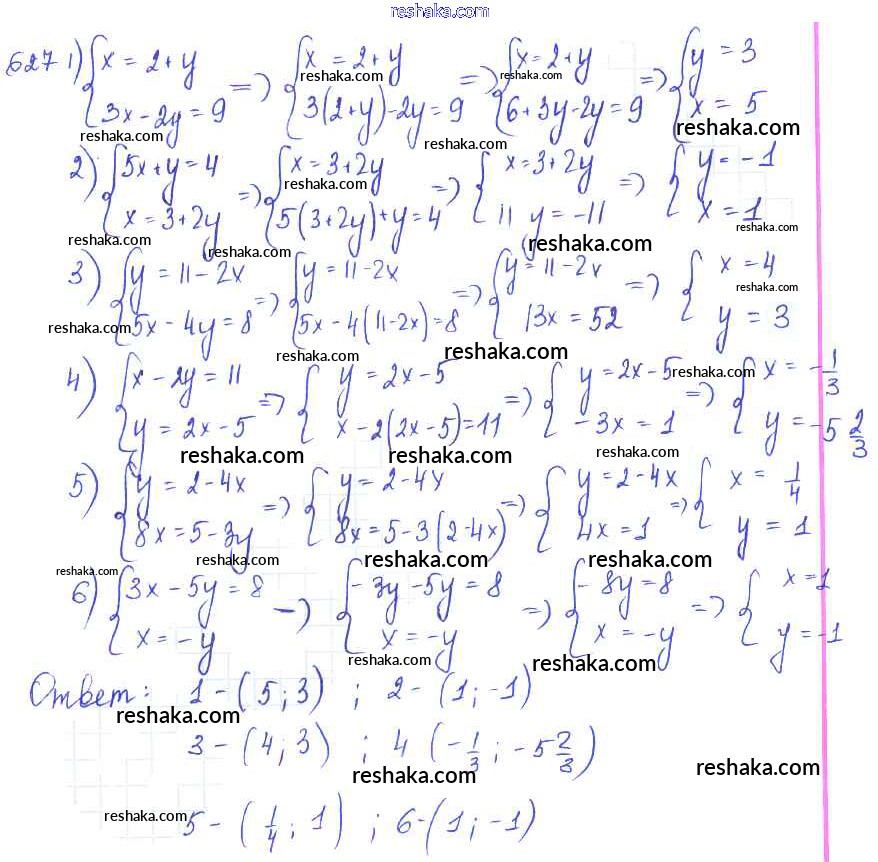 reshaka.com
627 1) {x = 2 + y => {x = 2 + y => {x = 2 + y => {y = 3
3x - 2y = 9 3(2+y) - 2y = 9 6 + 3y - 2y = 9 x = 5
reshaka.com reshaka.com reshaka.com reshaka.com reshaka.com reshaka.com
2) {5x + y = 4 => {x = 3 + 2y => {x = 3 + 2y => {y = -1
x = 3 + 2y 5(3+2y) + y = 4 11 y = -11 x = 1
reshaka.com reshaka.com reshaka.com reshaka.com reshaka.com
3) {y = 11 - 2x => {y = 11 - 2x => {y = 11 - 2x => {x = 4
5x - 4y = 8 5x - 4(11-2x) = 8 13x = 52 y = 3
reshaka.com reshaka.com reshaka.com reshaka.com
4) {x - 2y = 11 => {y = 2x - 5 => {y = 2x - 5 => {x = -1/3
y = 2x - 5 x - 2(2x-5) = 11 -3x = 1 y = -5 2/3
reshaka.com reshaka.com reshaka.com reshaka.com
5) {y = 2 - 4x => {y = 2 - 4x => {y = 2 - 4x => {x = 1/4
8x = 5 - 3y 8x = 5 - 3(2-4x) 4x = 1 y = 1
reshaka.com reshaka.com reshaka.com reshaka.com
6) {3x - 5y = 8 -> {-3y - 5y = 8 => {-8y = 8 => {x = 1
x = -y x = -y x = -y y = -1
reshaka.com reshaka.com reshaka.com
Ответ: 1 - (5; 3) ; 2 - (1; -1)
reshaka.com
3 - (4; 3) ; 4 (-1/3; -5 2/3)
reshaka.com reshaka.com
reshaka.com 5 - (1/4; 1) ; 6 - (1; -1)